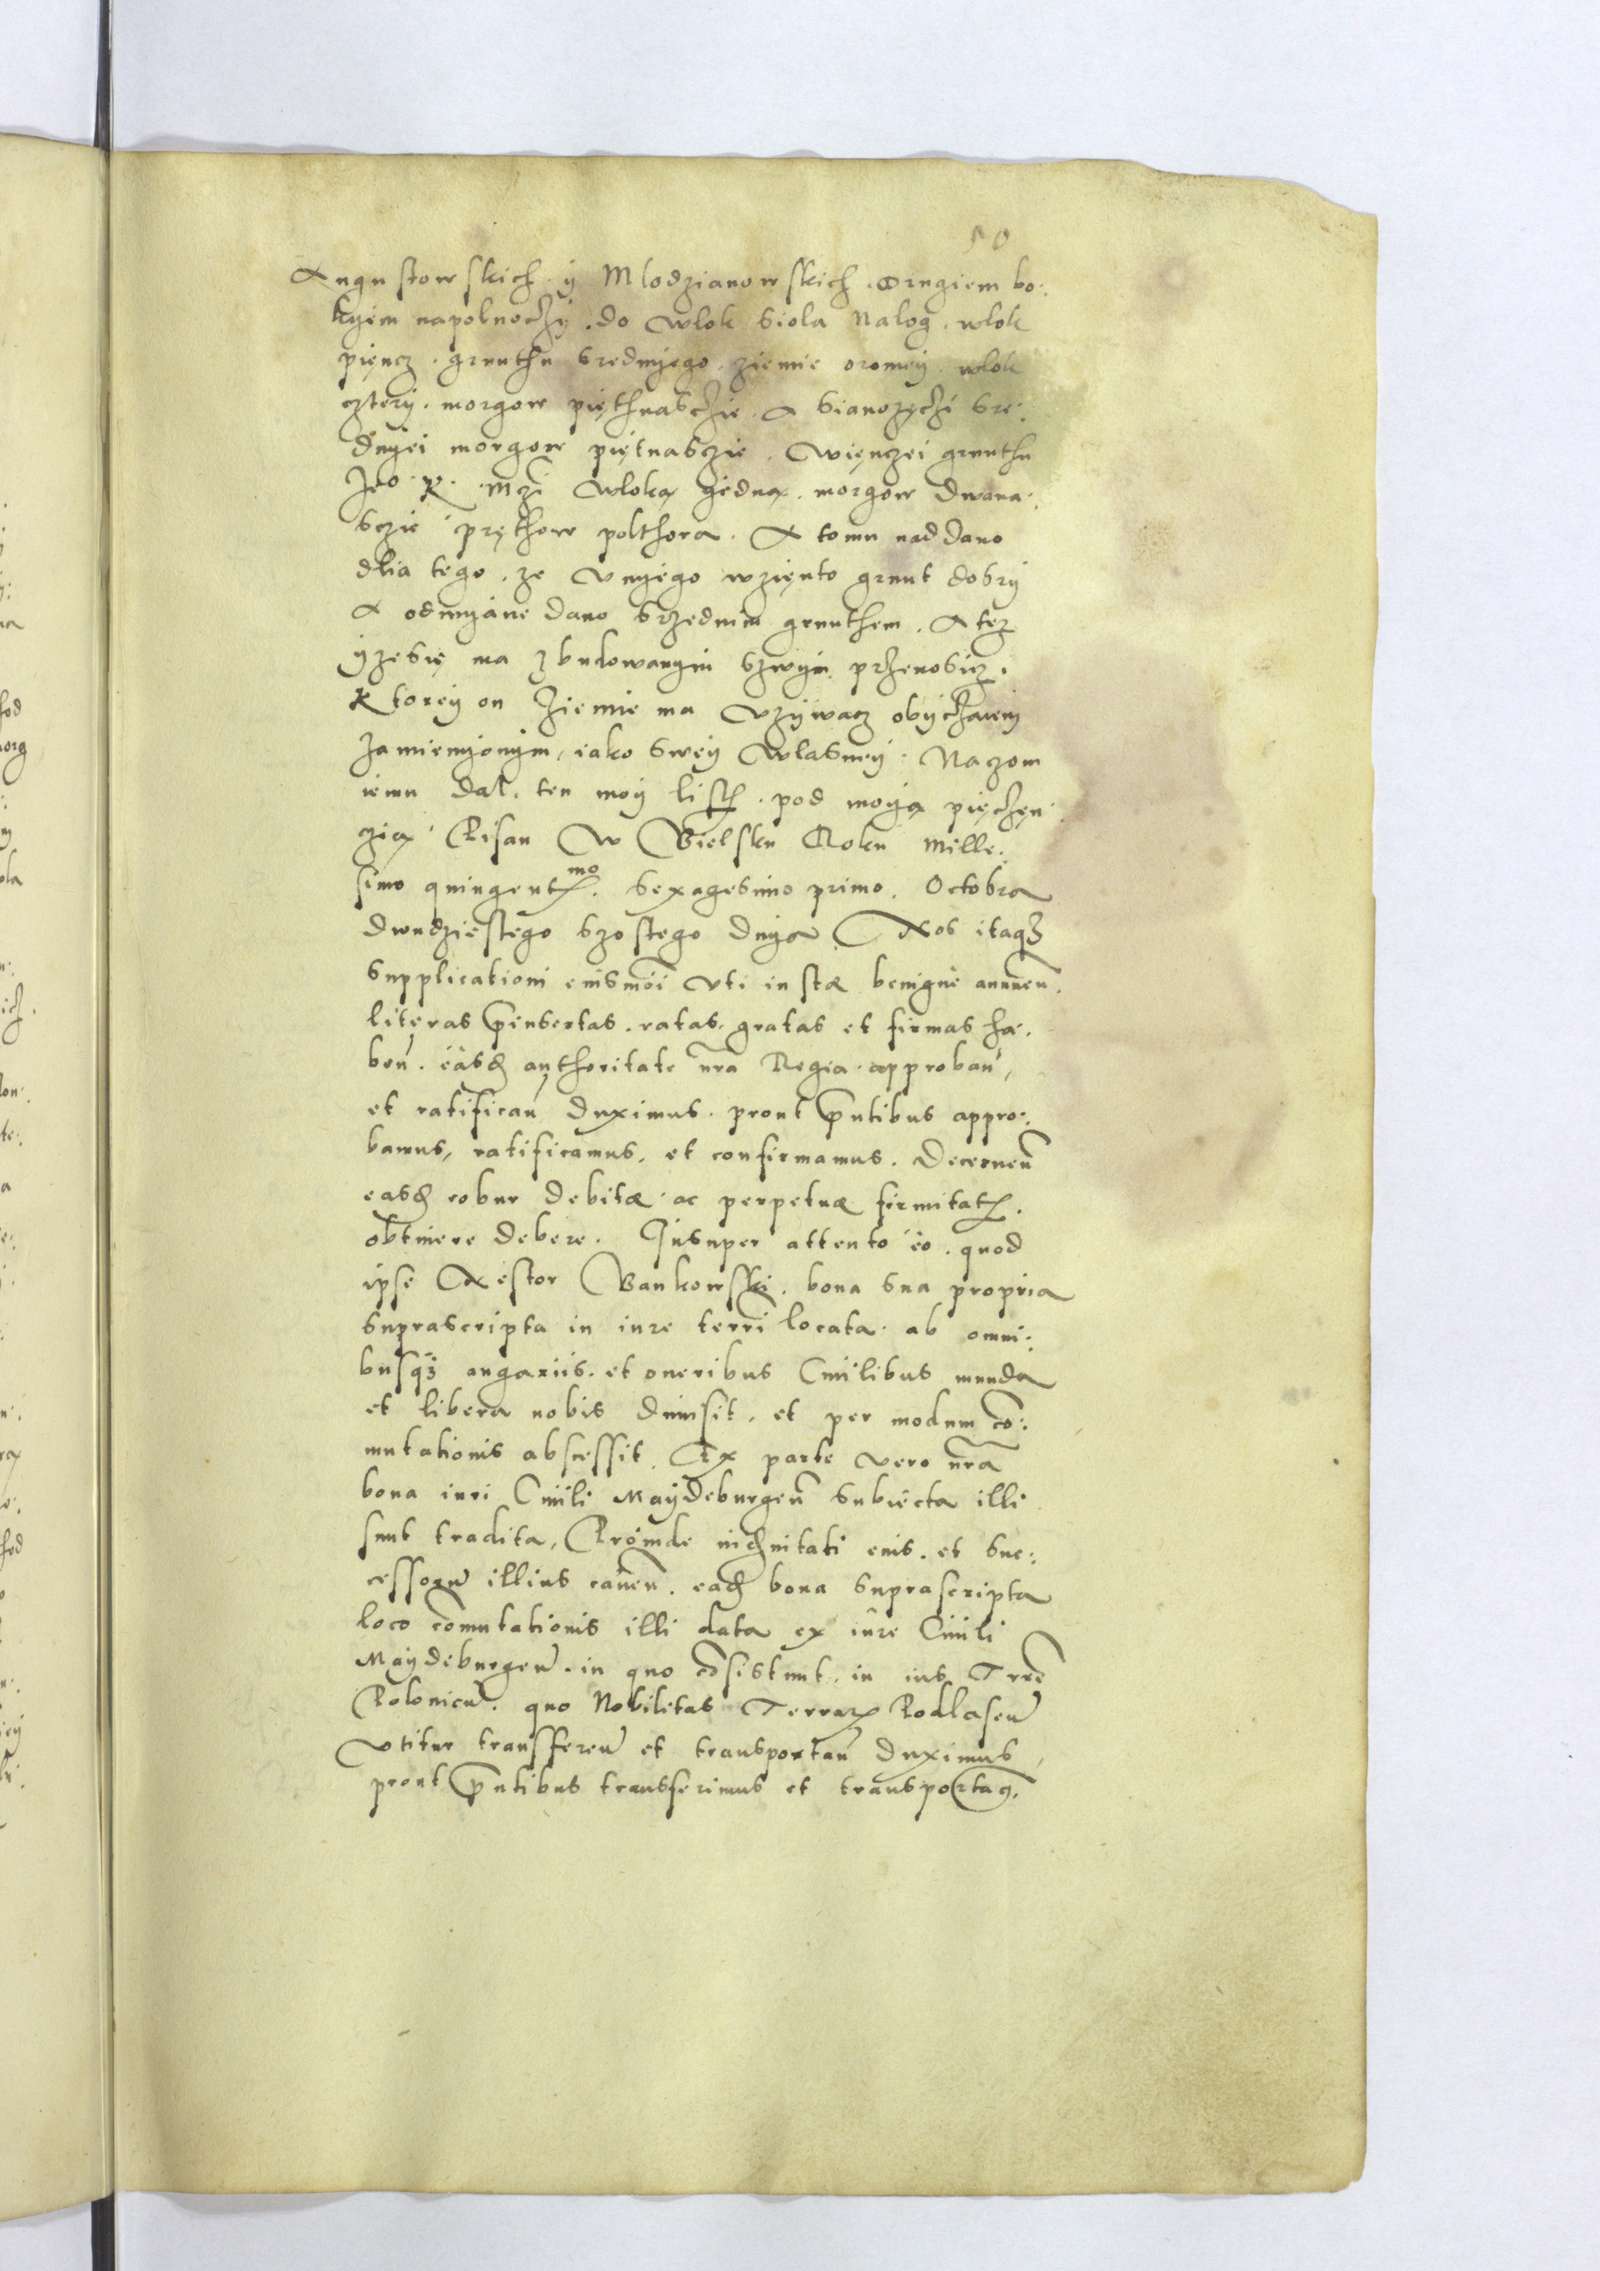 50
Augustowskich y Mlodzianowskich . Drugiem bo:
kyem napolnoczÿ . do wlok siola Nalog . wlok
pięncz . grunthu sredniego . ziemie oromey . wlok
czterÿ . morgow pięthnasczie . A sianozęczi sre:
dnÿei morgow piętnasczie . Więnczei grunthu
Jeo K. Mczi wloka jedna . morgow dwana:
sczie prętow polthora . A tomu naddano
dlia tego . ze v nÿego wzięnto grunt dobrÿ
A odmÿane dano srzednim grunthem . A tez
ÿze się ma z budowanÿm szwÿm przenosicz .
Ktorey on ziemie ma vzÿwacz obÿczaiem
zamiemÿonÿm, iako swey wlasney . Na czom
iemu dal . ten moÿ listh . pod moÿa pięczęn:
czia Pisan w Bielsku Roku Mille:
simo quingentmo . sexagesimo primo . Octobra
dwudziestego szostego dnÿa . Nos itaq3
supplicationi eiusmoi vti iustæ benigne annuen .
literas pinsertas . ratas . gratas et firmas ha:
ben . easd authoritate nra Regia approban,
et ratifican duximus . prout pntibus appro:
bamus, ratificamus, et confirmamus . Decernen
easd robur debitæ ac perpetuæ firmitat .
obtinere debere . Insuper attento eo . quod
ipse Nestor Bankowski . bona sua propria
suprascripta in iure terri locata ab omni:
busq3 angariis . et oneribus Ciuilibus munda
et libera nobis dimisit . et per modum co:
mutationis abscessit . Ex parte vero nra
bona iuri Ciuili Maÿdeburgen subiecta illi
sunt tradita, Proinde indemnitati eius . et suc:
cessoru illius cauen . ead bona suprascripta
loco comutationis illi data ex iure Ciuili
Maÿdeburgen . in quo cosistunt . in ius Trre
Polonicu . quo Nobilitas Terrar Podlasen
vtitur transferen et transportan duximus,
prout pntibus transferimus et transportam9.